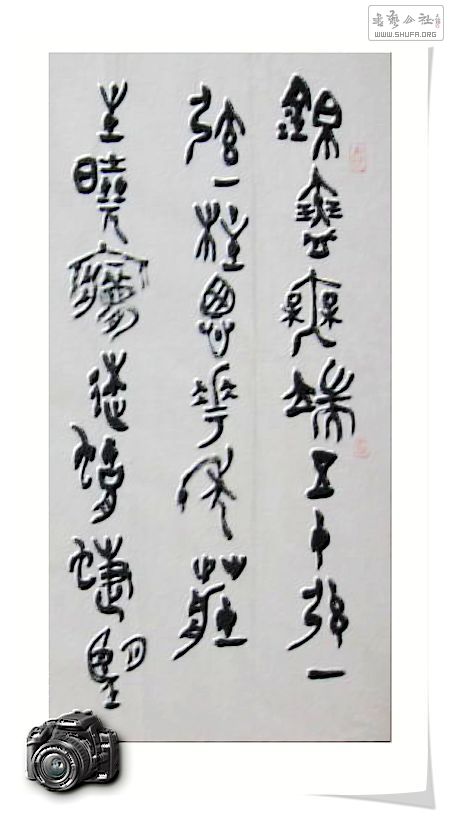 書藝公社
WWW.SHUFA.ORG
錦瑟無端五十弦一
弦一柱思華年莊
生曉夢迷蝴蝶望